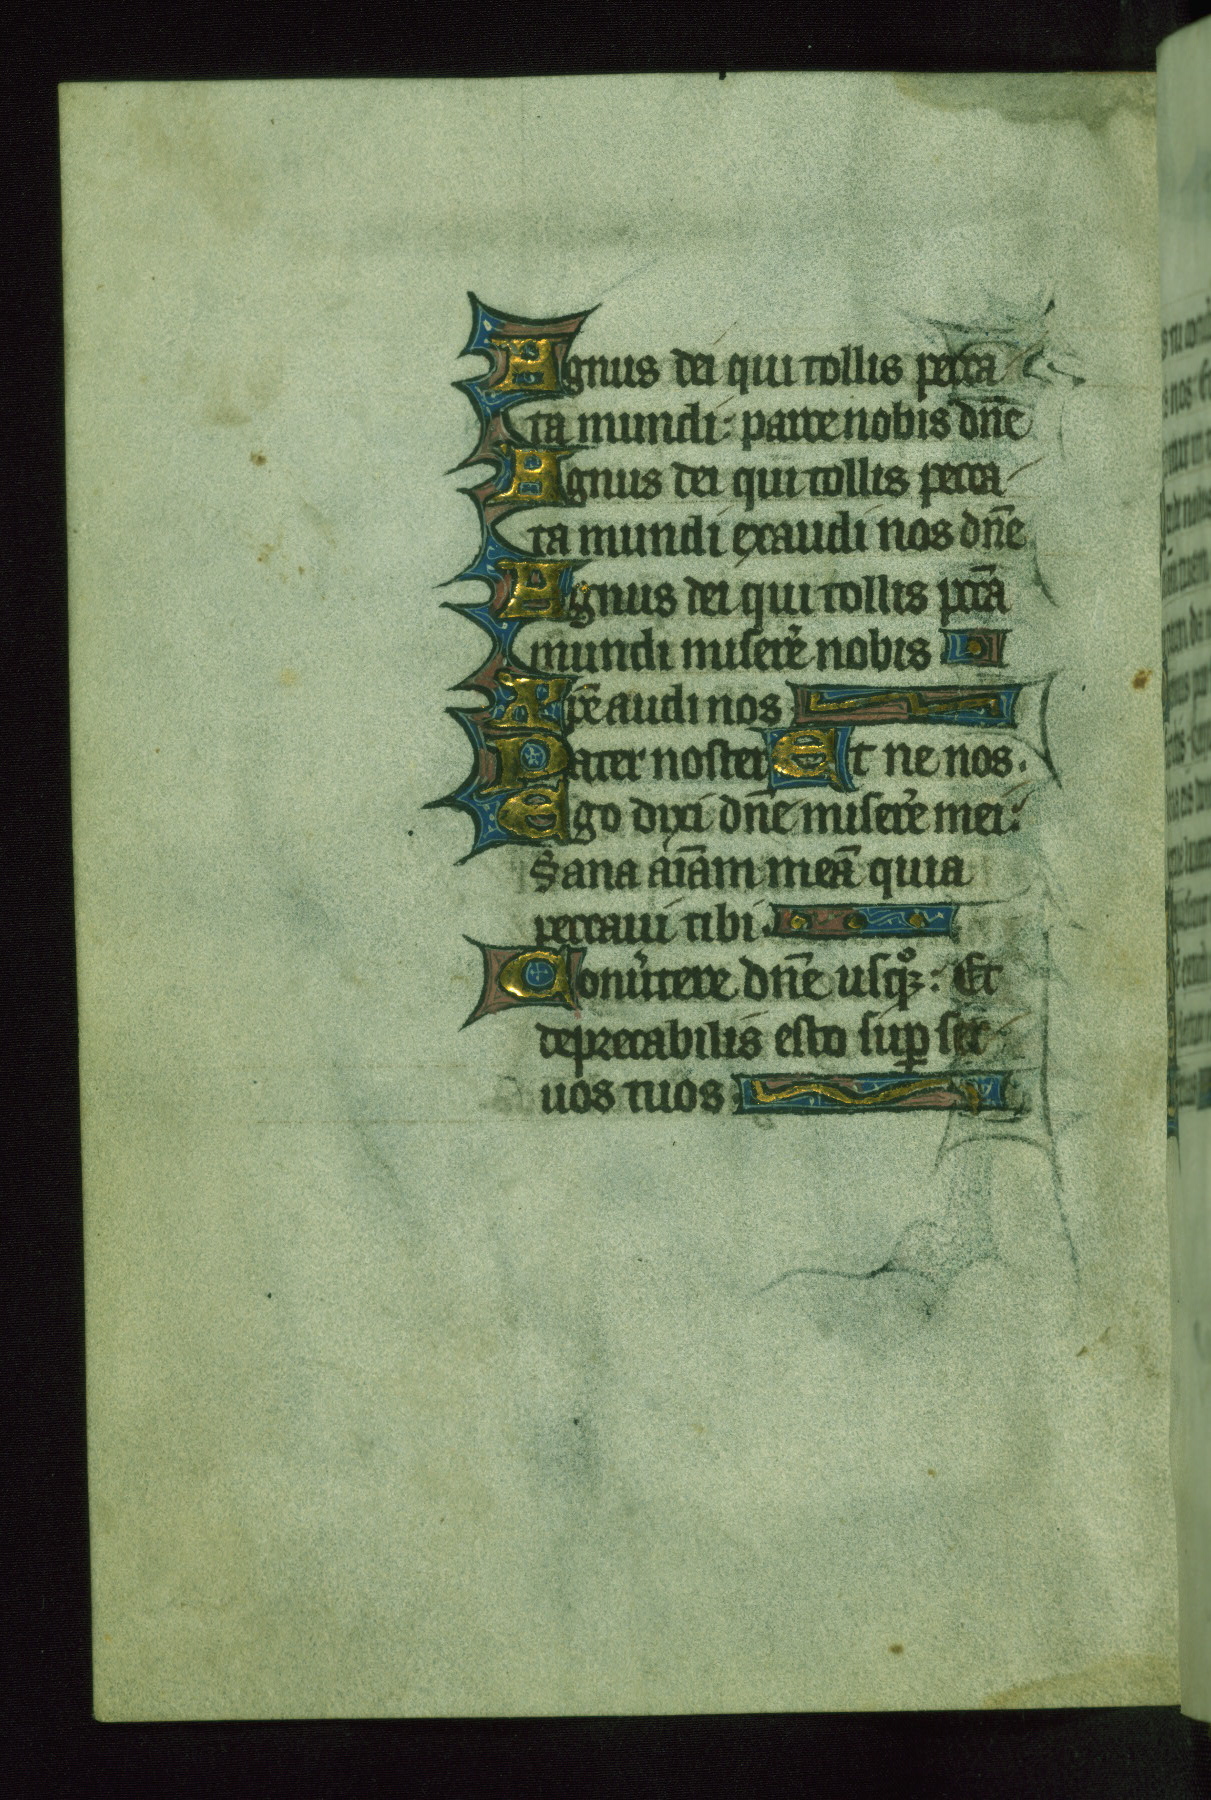 Agnus dei qui tollis pecca
ta mundi: parce nobis dn̄e
Agnus dei qui tollis pecca
ta mundi exaudi nos dn̄e
Agnus dei qui tollis pccā
mundi miserē nobis
Xp̄e audi nos
Pater noster Et ne nos.
Ego dixi dn̄e miserē mei:
Sana aīam meā quia
peccaui tibi.
Conu̾tere dn̄e usq̄ꝫ: Et
deprecabilis esto suꝑ ser
uos tuos